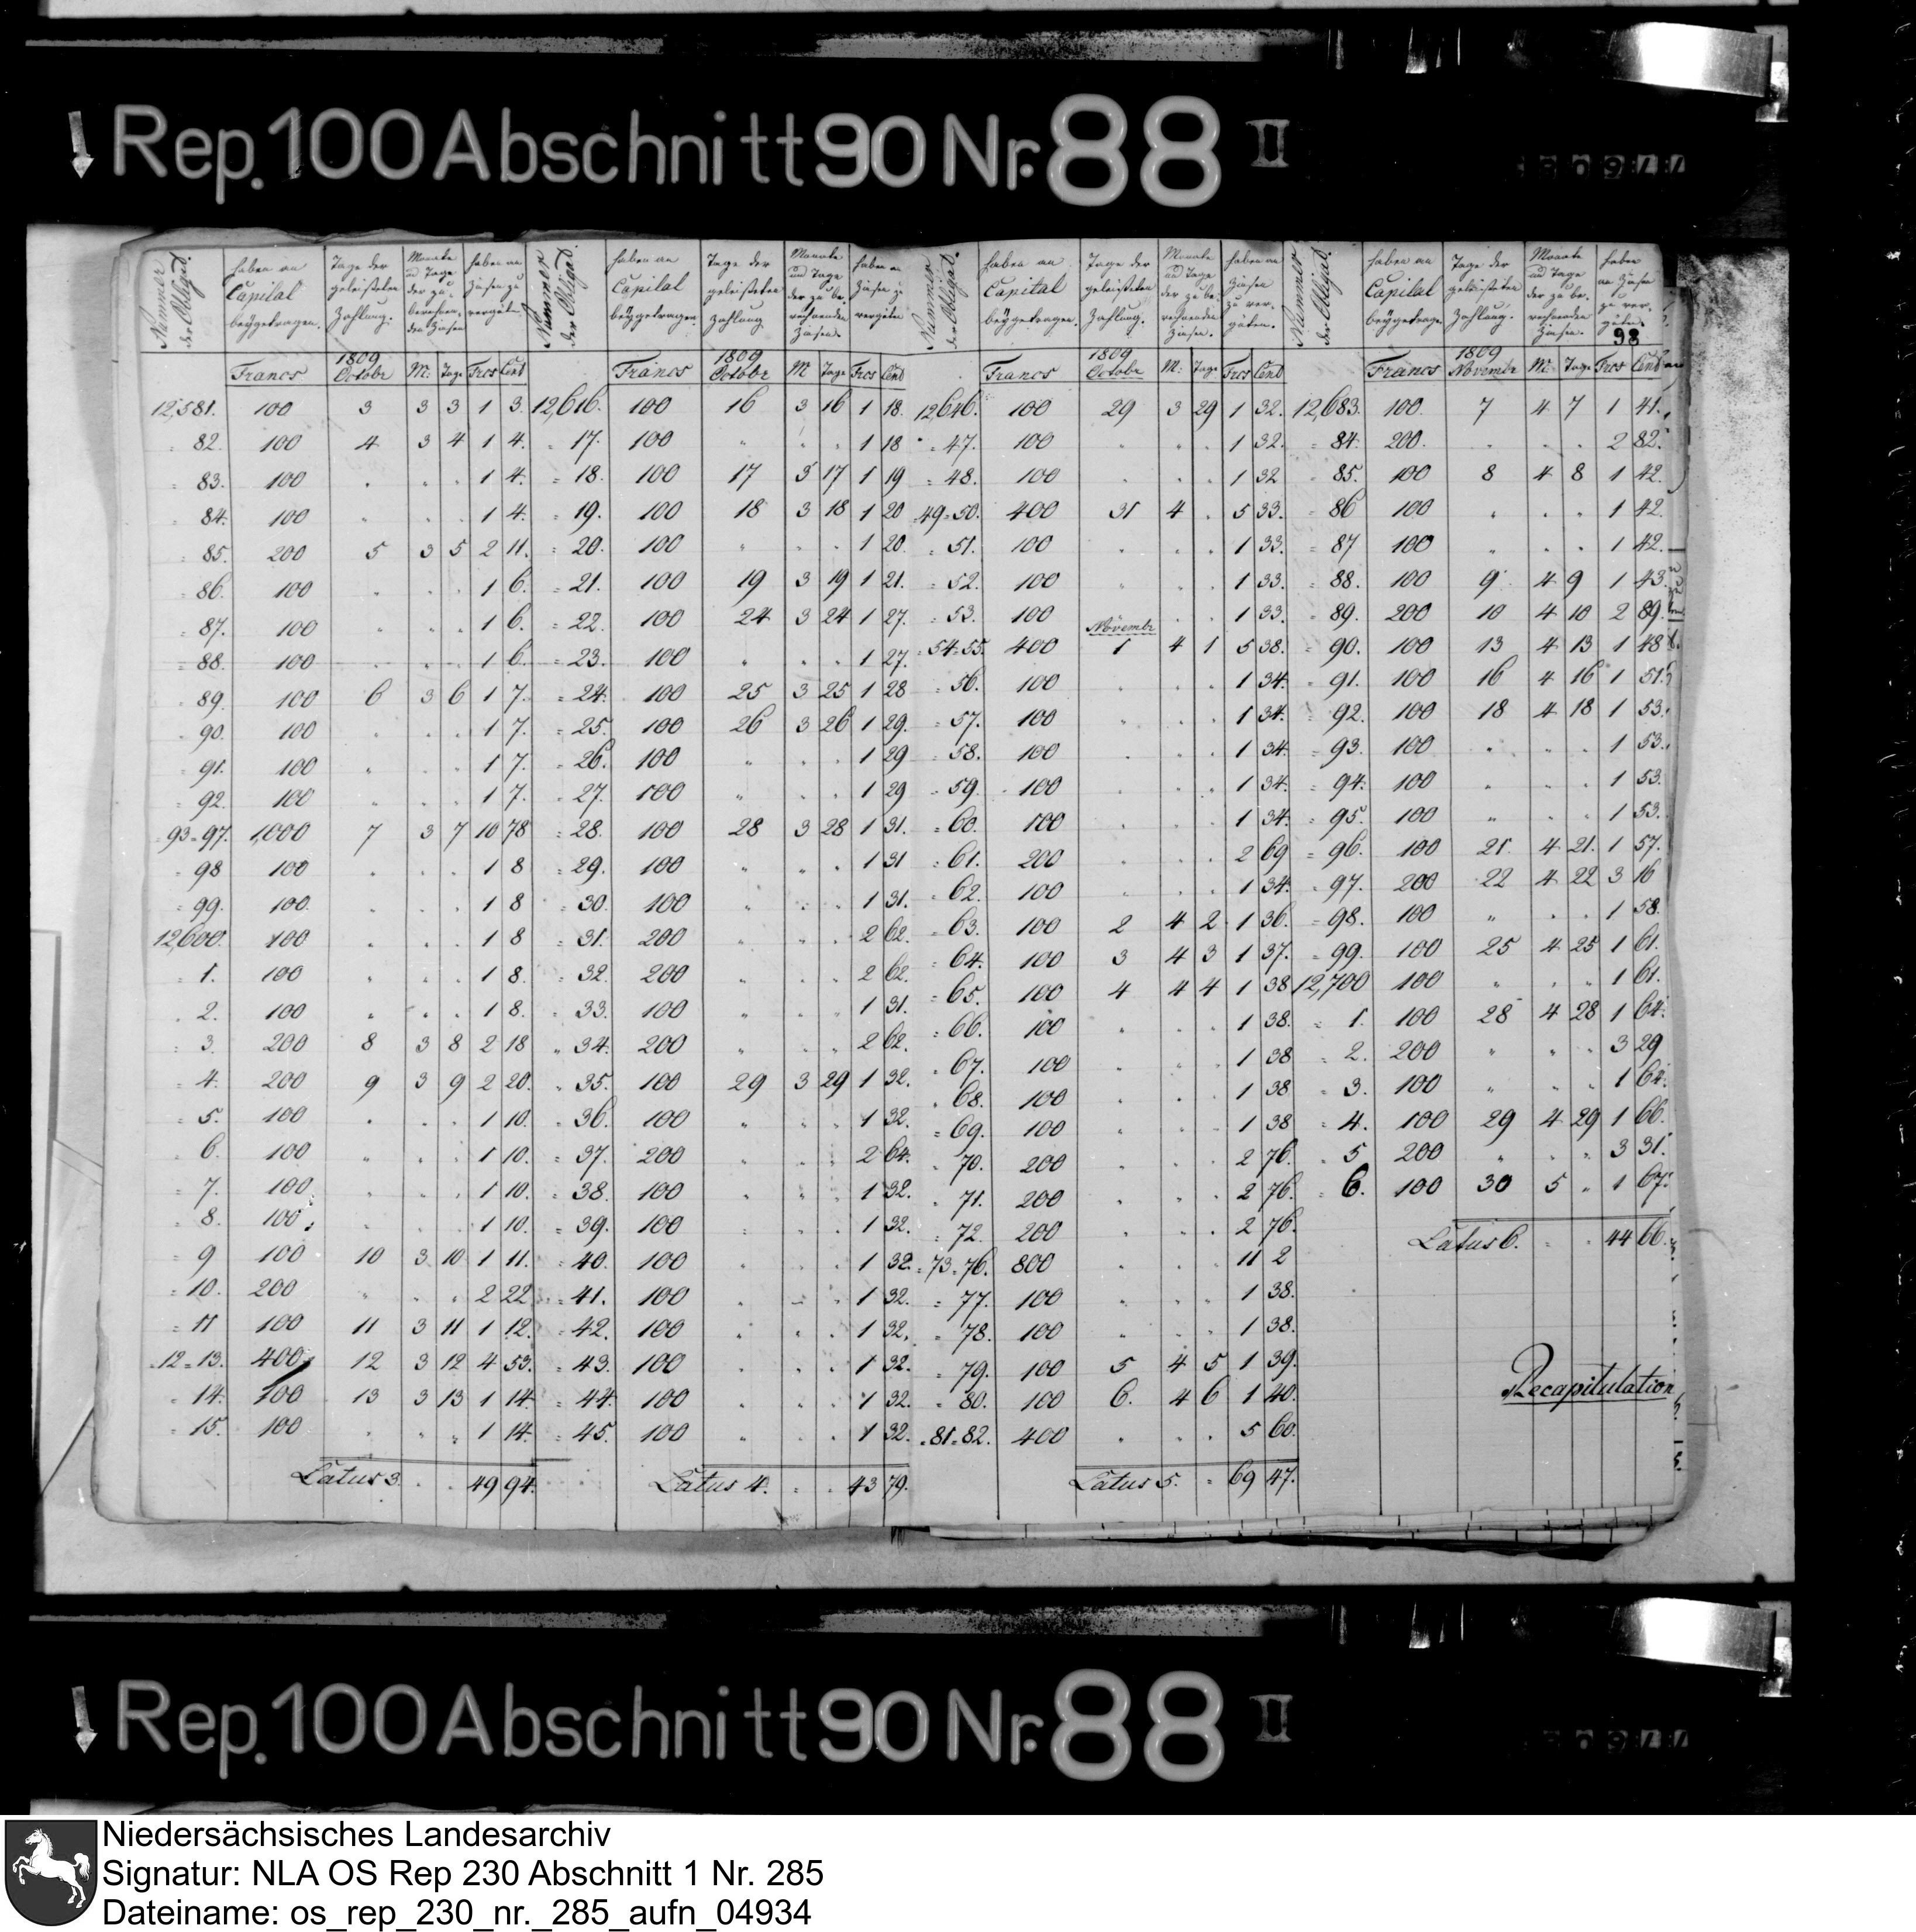 Rep. 100 Abschnitt 90 Nr. 88 II
Nummer der Obligat.
haben an Capital beygetragen.
Tage der geleisteten Zahlung.
Monate und Tage der zu berechnenden Zinsen
haben an Zinsen zu vergüten.
Nummer der Obligat.
haben an Capital beygetragen
Tage der geleisteten Zahlung
Monate und Tage der zu berechnenden Zinsen.
haben an Zinsen zu vergüten
Nummer der Obligat.
haben an Capital beygetragen.
Tage der geleisteten Zahlung.
Monate und Tage der zu berechnenden Zinsen.
haben an Zinsen zu vergüten.
Nummer der Obligat.
haben an Capital beygetragen
Tage der geleisteten Zahlung.
Monate und Tage der zu berechnenden Zinsen.
haben an Zinsen zu vergüten.
98
Francs 1809 Octobr M: Tage Frcs Cent
Francs 1809 Octobr M Tage Frcs Cent
Francs 1809 Octobr M: Tage Frcs Cent
Francs 1809 Novembr M: Tage Frcs Cent
12,581. 100 3 3 3 1 3.
82. 100 4 3 4 1 4.
83. 100 . . . 1 4.
84. 100 . . . 1 4.
85. 200 5 3 5 2 11.
86. 100 . . . 1 6.
87. 100 . . . 1 6.
88. 100 . . . 1 6.
89. 100 6 3 6 1 7.
90. 100 . . . 1 7.
91. 100 . . . 1 7.
92. 100 . . . 1 7.
93=97. 1,000 7 3 7 10 78
98 100 . . . 1 8
99. 100. . . . 1 8
12,600. 100 . . . 1 8
1. 100 . . . 1 8.
2. 100 . . . 1 8.
3. 200 8 3 8 2 18
4. 200 9 3 9 2 20.
5. 100 . . . 1 10.
6. 100 . . . 1 10.
7. 100 . . . 1 10.
8. 100 . . . 1 10.
9 100 10 3 10 1 11.
10. 200 . . . 2 22
11 100 11 3 11 1 12.
12=13. 400 12 3 12 4 53.
14. 100 13 3 13 1 14.
15. 100 . . . 1 14.
Latus 3. . . 49 94.
12,616. 100 16 3 16 1 18.
17. 100 " . . 1 18
18. 100 17 3 17 1 19
19. 100 18 3 18 1 20
20. 100 " . . 1 20.
21. 100 19 3 19 1 21.
22. 100 24 3 24 1 27.
23. 100 " . . 1 27.
24. 100 25 3 25 1 28
25. 100 26 3 26 1 29.
26. 100 " . . 1 29
27. 100 " . . 1 29
28. 100 28 3 28 1 31.
29. 100 " . . 1 31
30. 100 " . . 1 31.
31. 200 " . . 2 62.
32. 200 " . . 2 62.
33. 100 " . . 1 31.
34. 200 " . . 2 62.
35. 100 29 3 29 1 32.
36. 100 " . . 1 32.
37. 200 " . . 2 64.
38. 100 " . . 1 32.
39. 100 . . . 1 32.
40. 100 . . . 1 32.
41. 100 . . . 1 32.
42. 100 . . . 1 32.
43. 100 . . . 1 32.
44. 100 . . . 1 32.
45. 100 . . . 1 32.
Latus 4. . . 43 79.
12,646. 100 29 3 29 1 32.
47. 100 . . . 1 32.
48. 100 . . . 1 32
49=50. 400 31 4 . 5 33.
51. 100 . . . 1 33.
52. 100 . . . 1 33.
53. 100 . . . 1 33
Novembr
54=55. 400 1 4 1 5 38.
56. 100 . . . 1 34.
57. 100 . . . 1 34.
58. 100 . . . 1 34.
59. 100 . . . 1 34.
60. 100 . . . 1 34.
61. 200 . . . 2 69
62. 100 . . . 1 34.
63. 100 2 4 2. 1 36.
64. 100 3 4 3 1 37.
65. 100 4 4 4 1 38
66. 100 . . . 1 38.
67. 100 . . . 1 38
68. 100 . . . 1 38
69. 100 . . . 1 38
70. 200 . . . 2 76.
71. 200 . . . 2 76.
72. 200 . . . 2 76.
73=76. 800 . . . 11 2
77. 100 . . . 1 38.
78. 100 . . . 1 38.
79. 100 5 4 5 1 39.
80. 100 6. 4 6 1 40.
81=82. 400 . . . 5 60.
Latus 5. . 69 47.
12,683. 100. 7 4 7 1 41.
84. 200. . . . 2 82.
85. 100 8 4 8 1 42.
86 100 . . . 1 42.
87 100 " . . 1 42.
88. 100 9 4 9 1 43.
89. 200 10 4 10 2 89.
90. 100 13 4 13 1 48
91. 100 16 4 16 1 51.
92. 100 18 4 18 1 53.
93. 100 " . . 1 53.
94. 100 " . . 1 53.
95. 100 " . . 1 53.
96. 100 21. 4 21. 1 57.
97. 200 22 4 22 3 16
98. 100 " . . 1 58.
99. 100 25 4 25 1 61.
12,700 100 " . . 1 61.
1. 100 28 4 28 1 64.
2. 200 " " . 3 29
3. 100 " . . 1 64.
4. 100 29 4 29 1 66.
5 200 " . . 3 31.
6. 100 30 5 " 1 67.
Latus 6. . . 44 66.
Recapitulation
Rep. 100 Abschnitt 90 Nr. 88 II
Niedersächsisches Landesarchiv
Signatur: NLA OS Rep 230 Abschnitt 1 Nr. 285
Dateiname: os_rep_230_nr._285_aufn_04934